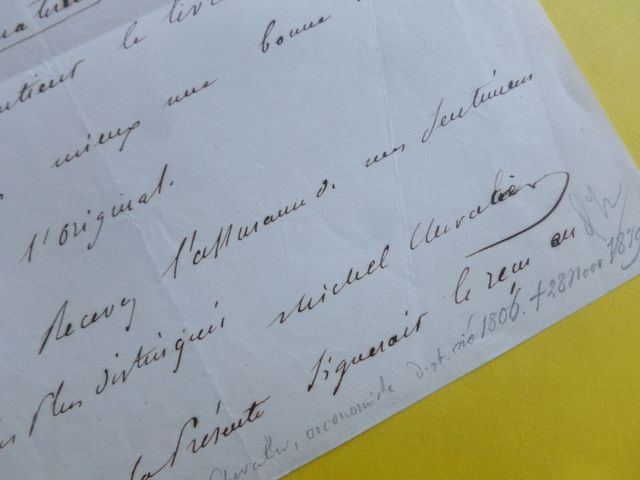 le livre
mieux une bonne
l'original.
Recevez l'assurance de mes sentimens
plus distingués Michel Chevalier
la Présente signerait le reçu en
Chevalier, oeconom né 1806. † 28 Novr 1879